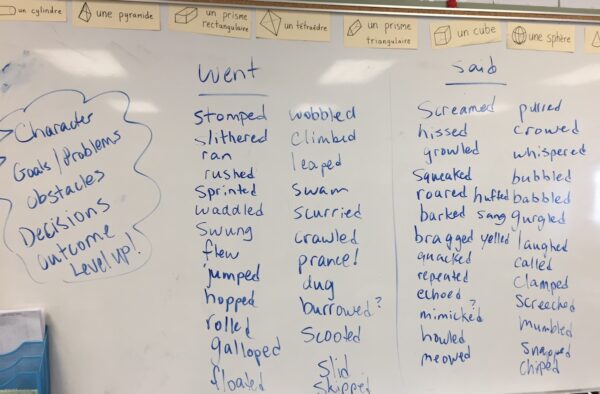 un cylindre
une pyramide
un prisme rectangulaire
un tétraèdre
un prisme triangulaire
un cube
une sphère
Character
Goals/Problems
Obstacles
Decisions
Outcome
Level up!
Went
stomped
slithered
ran
rushed
sprinted
waddled
swung
flew
jumped
hopped
rolled
galloped
floated
wobbled
climbed
leaped
swam
scurried
crawled
prance!
dug
burrowed?
scooted
slid
skipped
Said
screamed
hissed
growled
squeaked
roared huffed
barked sang
bragged yelled
quacked
repeated
echoed
mimicked?
howled
meowed
purred
crowed
whispered
bubbled
babbled
gurgled
laughed
called
clamped
screeched
mumbled
snapped
chiped